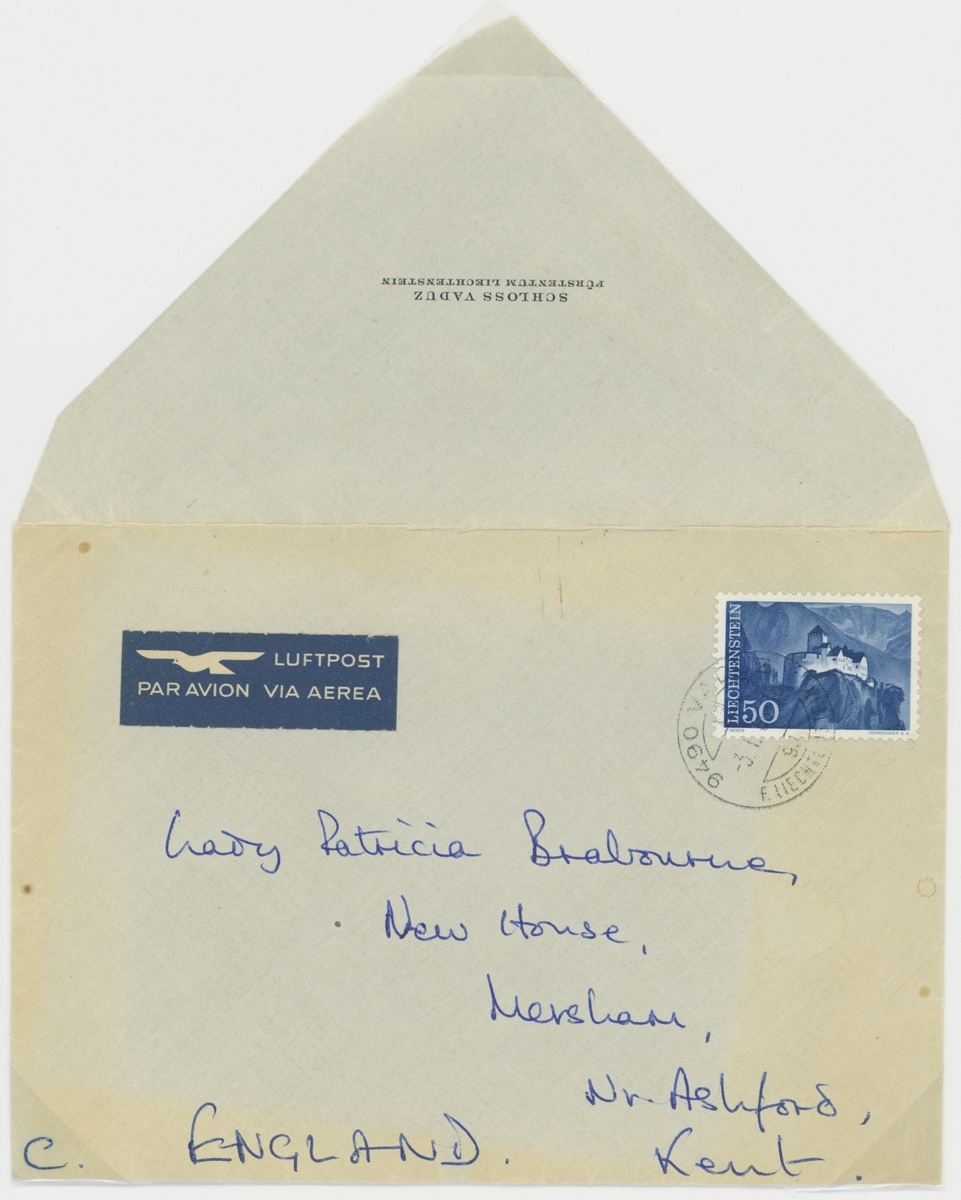 SCHLOSS VADUZ
FÜRSTENTUM LIECHTENSTEIN
LUFTPOST
PAR AVION VIA AEREA
LIECHTENSTEIN
50
9490 VA
-3.
F. LIECHT
Lady Patricia Brabourne,
New House,
Mersham,
Nr Ashford,
Kent.
C. ENGLAND.